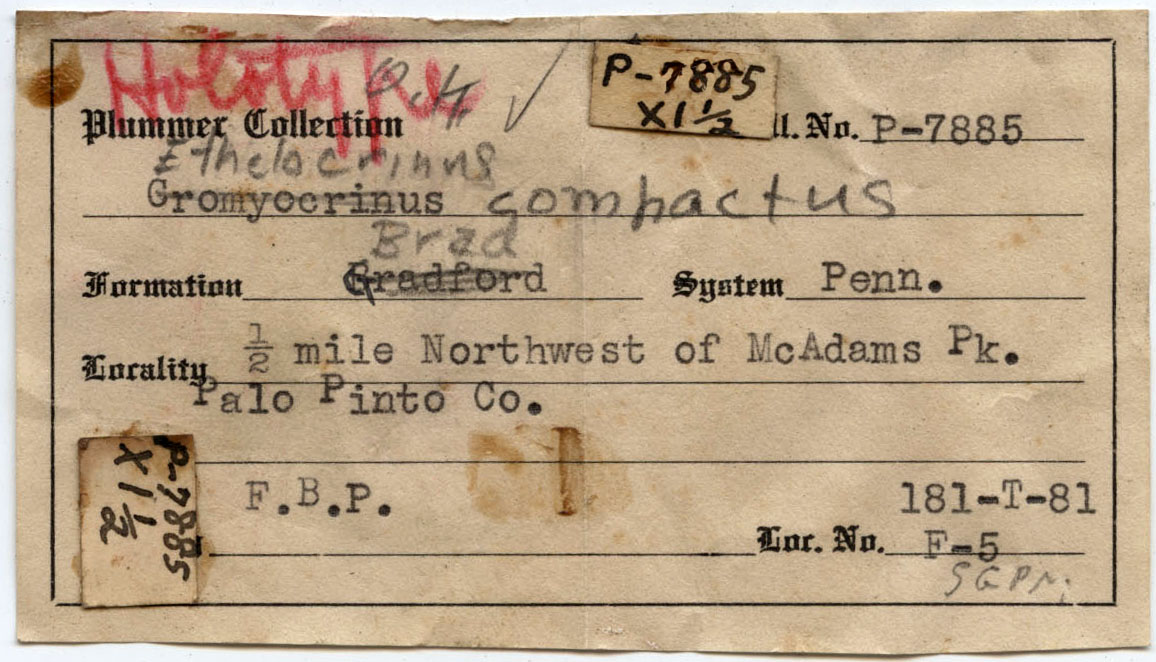 Holotype
O.K.
P-7885
X1½
Plummer Collection
l. No. P-7885
Ethelocrinus
Gromyocrinus compactus
Brad
Formation Gradford System Penn.
Locality ½ mile Northwest of McAdams Pk.
Palo Pinto Co.
P-7885
X1½
F.B.P.
181-T-81
Loc. No. F-5